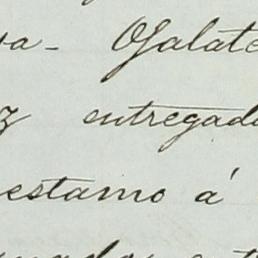 va- Galate
z entregad
estamo á